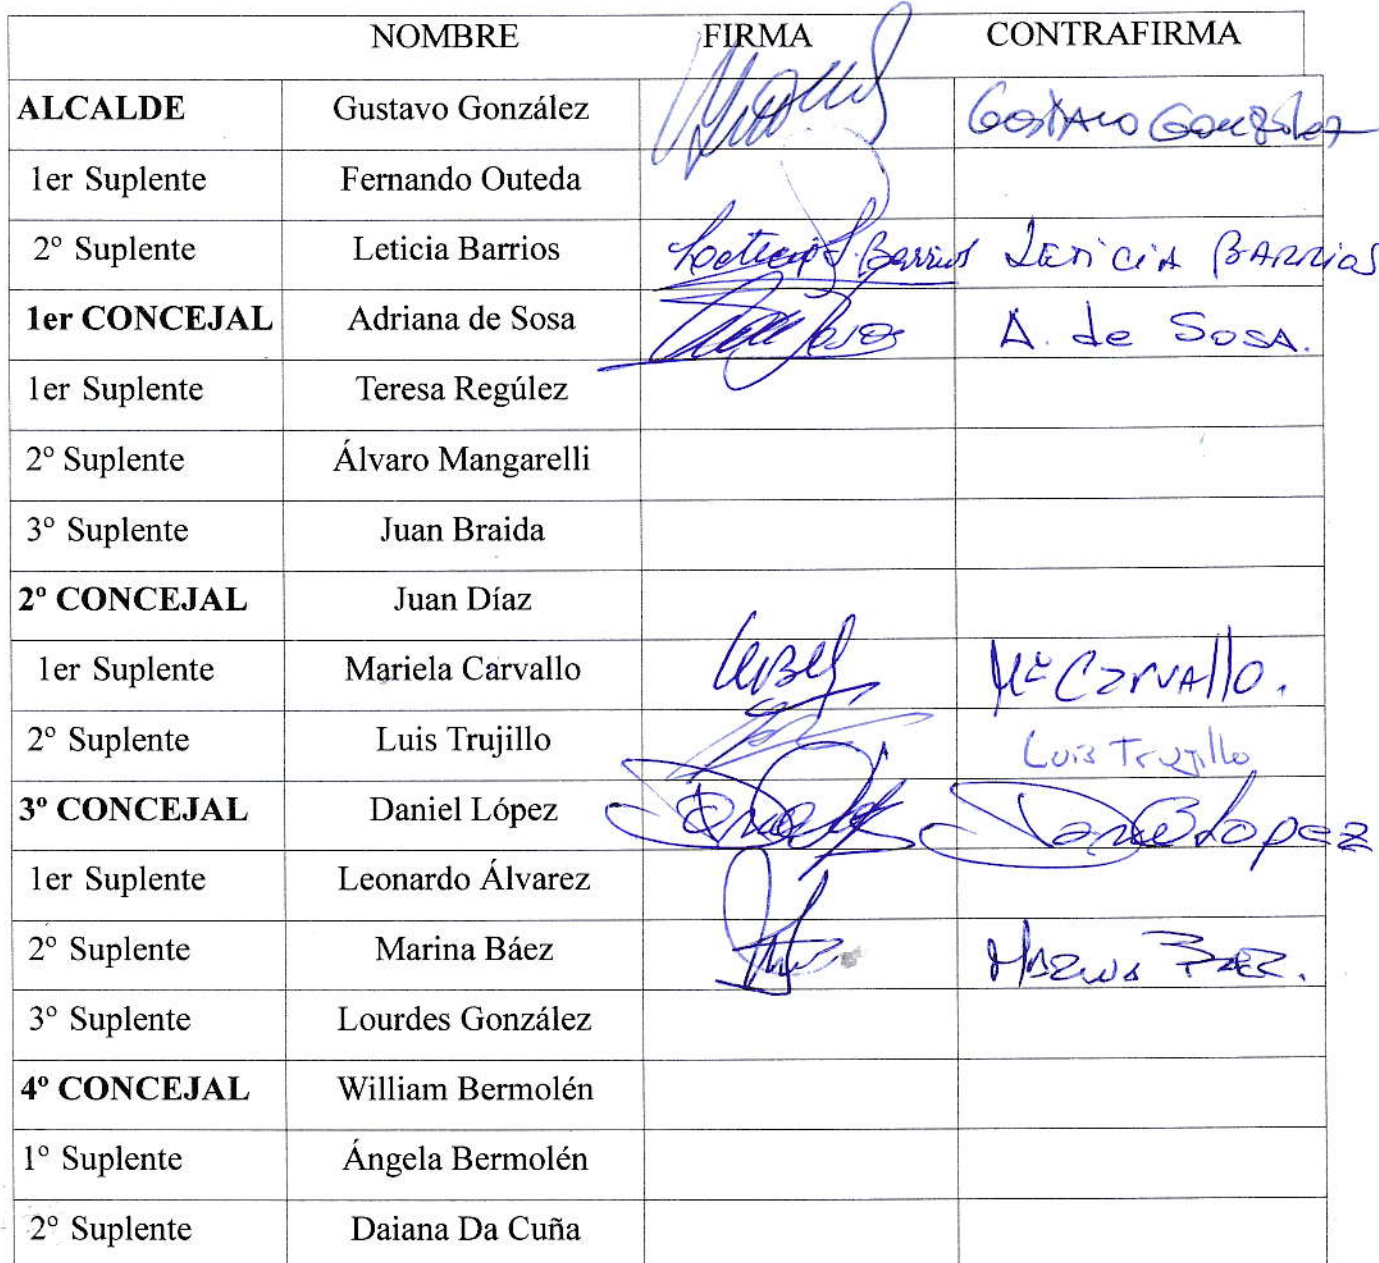 NOMBRE FIRMA CONTRAFIRMA
ALCALDE Gustavo González Gustavo González
1er Suplente Fernando Outeda
2º Suplente Leticia Barrios Leticia S. Barrios LETICIA BARRIOS
1er CONCEJAL Adriana de Sosa A. de Sosa.
1er Suplente Teresa Regúlez
2º Suplente Álvaro Mangarelli
3º Suplente Juan Braida
2º CONCEJAL Juan Díaz
1er Suplente Mariela Carvallo Mª Carvallo.
2º Suplente Luis Trujillo Luis Trujillo
3º CONCEJAL Daniel López Daniel Lopez
1er Suplente Leonardo Álvarez
2º Suplente Marina Báez Marina Baez.
3º Suplente Lourdes González
4º CONCEJAL William Bermolén
1º Suplente Ángela Bermolén
2º Suplente Daiana Da Cuña